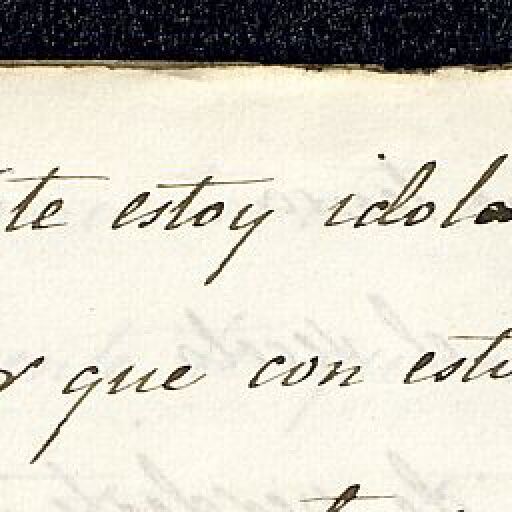 te estoy idola
que con estu